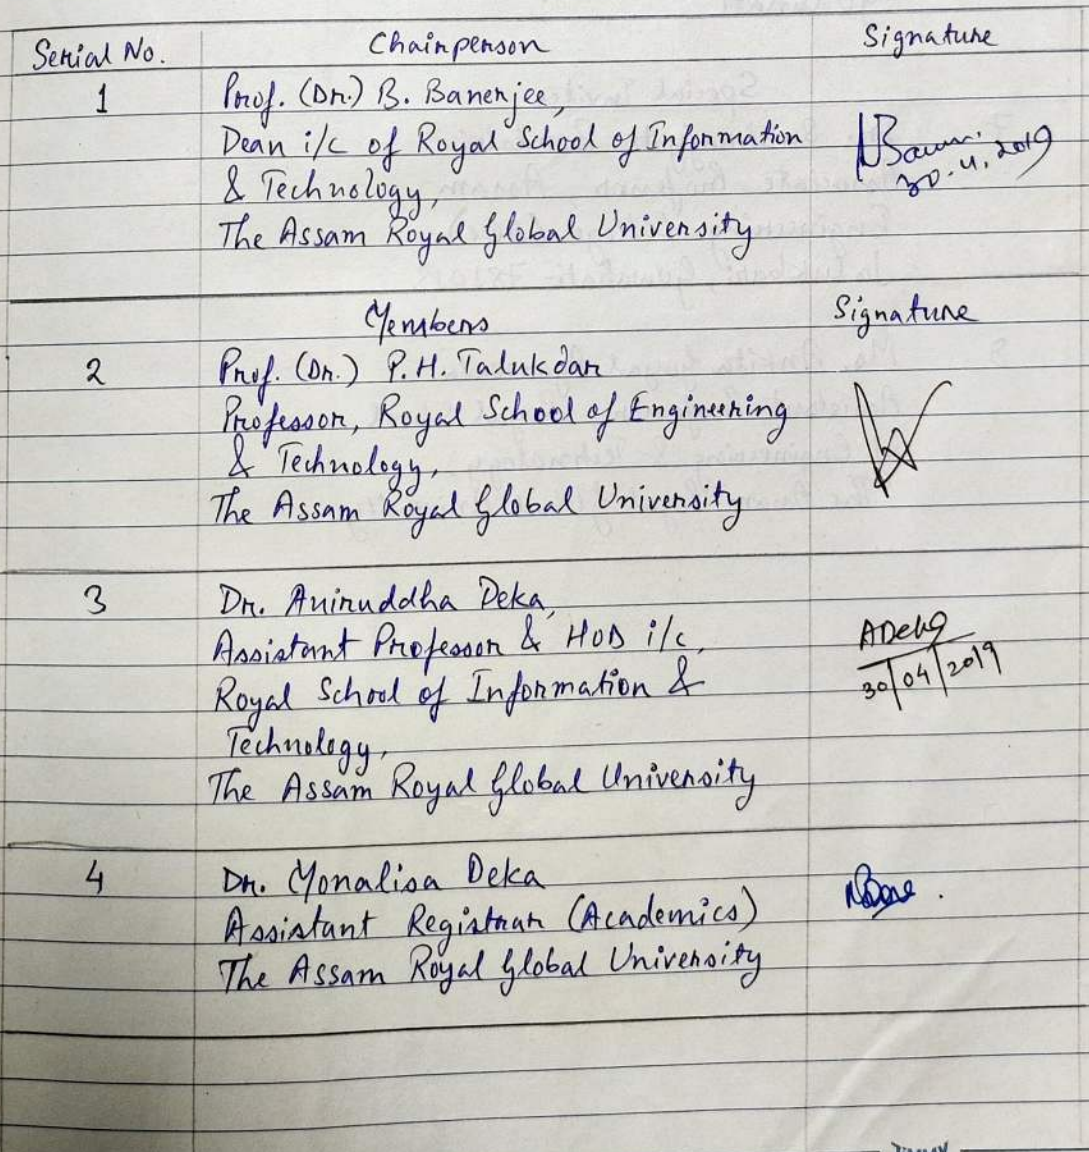 Serial No. Chairperson Signature
1 Prof. (Dr.) B. Banerjee,
Dean i/c of Royal School of Information
& Technology,
30.4.2019
The Assam Royal Global University
Members Signature
2 Prof. (Dr.) P.H. Talukdar
Professor, Royal School of Engineering
& Technology,
The Assam Royal Global University
3 Dr. Aniruddha Deka,
Assistant Professor & HOD i/c, ADeka
Royal School of Information & 30/04/2019
Technology,
The Assam Royal Global University
4 Dr. Monalisa Deka
Assistant Registrar (Academics)
The Assam Royal Global University